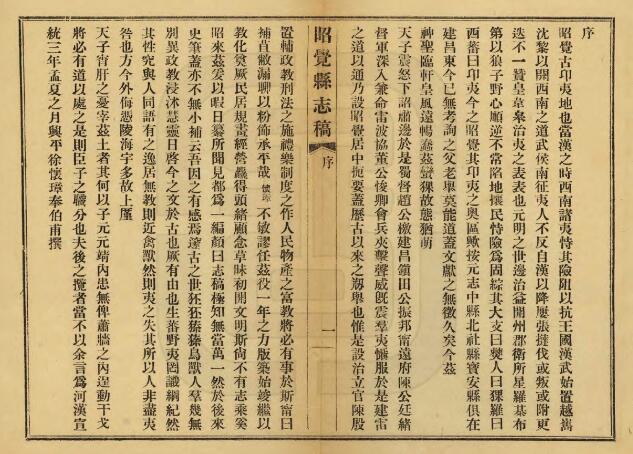 序
昭覺古卭夷地也當漢之時西南諸夷恃其險阻以抗王國漢武始置越嶲
沈黎以關西南之道武侯南征夷人不反自漢以降屢張撻伐或叛或附更
迭不一贊皇韋皋治夷之表表也元明之世邊治益開州郡衛所星羅棊布
第以狼子野心順逆不常陷地攘民恃險爲固綜其大支曰僰人曰猓玀曰
西蕃曰卭夷今之昭覺其卭夷之奥區歟按元志中縣北社縣寶安縣俱在
建昌東今已無考詢之父老舉莫能道蓋文獻之無徵久矣今茲
神聖臨軒皇風遠暢蠢茲蠻猓故態猶萌
天子震怒下詔肅邊於是蜀督趙公檄建昌鎮田公振邦甯遠府陳公廷緒
督軍深入兼命雷波協董公俊卿會兵夾擊聲威旣震羣夷懾服於是建雷
之道以通乃設昭覺居中扼要蓋歷古以來之剏舉也惟是設治立官陳殷
昭覺縣志稿
序
一
置輔政敎刑法之施禮樂制度之作人民物產之富敎將必有事於斯甯曰
補苴敝漏聊以粉飾承平哉懷璋不敏謬任茲役一年之力版築始竣繼以
敎化奠厥民居規畫經營羸得頭緒顧念草昧初開文明斯尙不有志乘奚
昭來茲爰以暇日纂所聞見都爲一編顏曰志稿極知無當萬一然於後來
史筆蓋亦不無小補云吾因之有感焉邃古之世狉狉獉獉鳥獸人羣幾無
別異政敎浸沐慧靈日啓今之文於古也厥有由也生蕃野夷罔識綱紀然
其性究與人同語有之逸居無敎則近禽獸然則夷之失其所以人非盡夷
咎也方今外侮憑陵海宇多故上廑
天子宵肝之憂宰茲土者其何以子元元靖內患無俾蕭牆之內逞動干戈
將必有道以處之是則臣子之職分也夫後之攬者當不以余言爲河漢宣
統三年孟夏之月興平徐懷璋奉伯甫撰